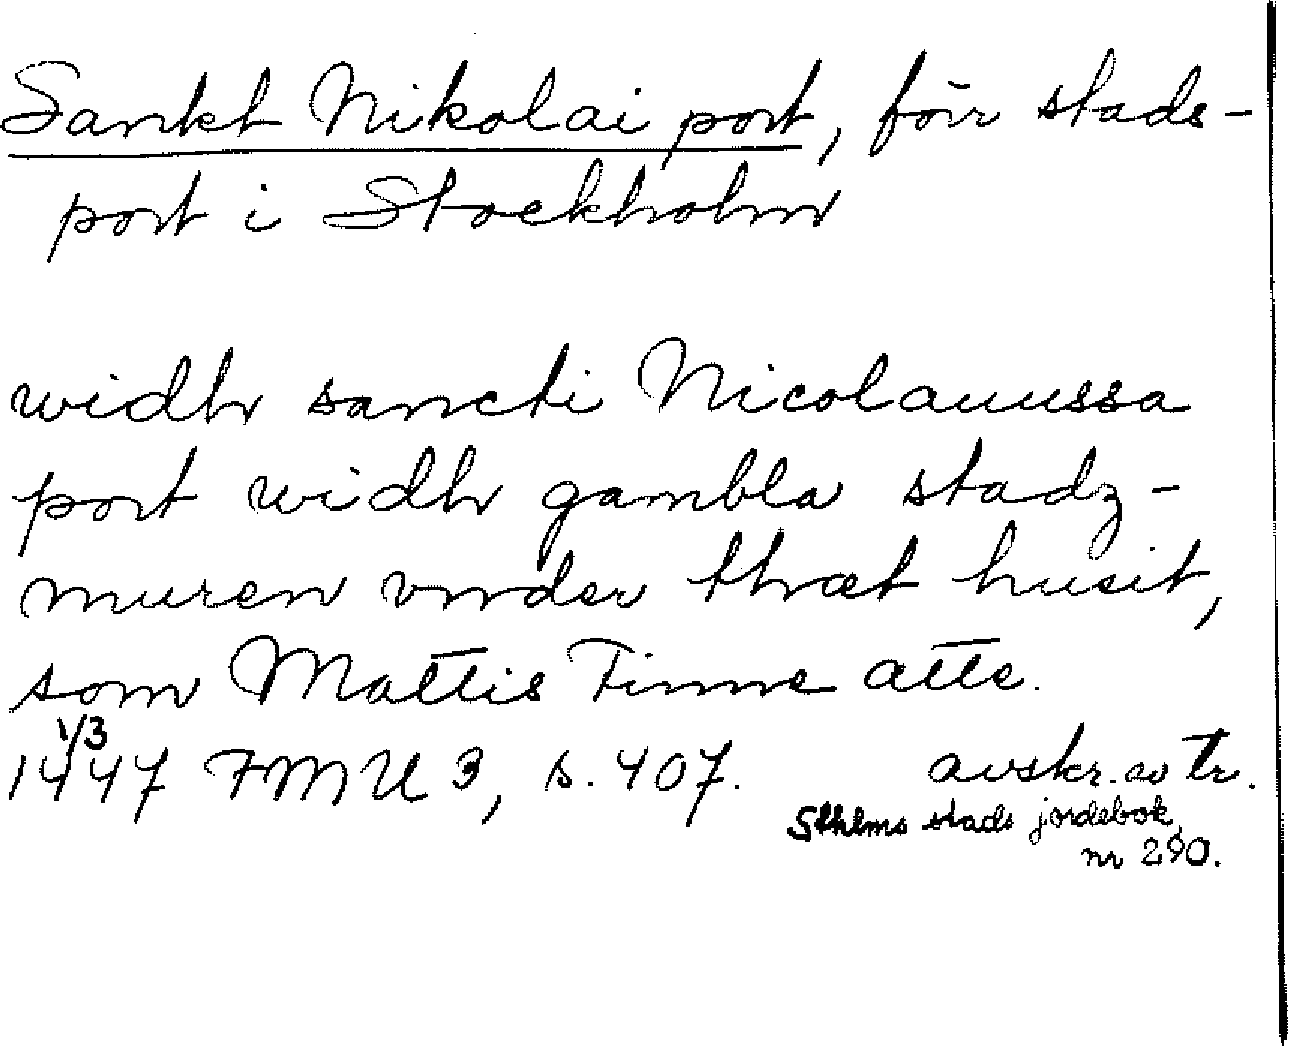 Sankt Nikolai port, förr stads-
port i Stockholm
widh sancti Nicolauussa
port widh gambla stadz-
muren vnder thræt husit,
som Mattis Finne atte.
1/3
1447 FMU 3, s. 407. avskr. av tr.
Sthlms stads jordebok,
nr 290.